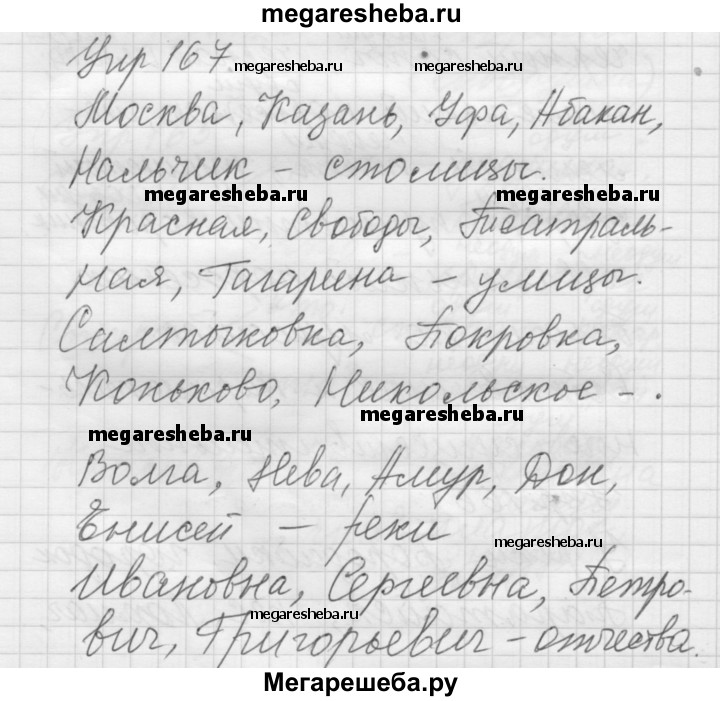 megaresheba.ru
Упр 167.
megaresheba.ru megaresheba.ru
Москва, Казань, Уфа, Абакан,
Нальчик – столицы.
megaresheba.ru megaresheba.ru
Красная, Свободы, Театраль-
ная, Гагарина – улицы.
Салтыковка, Покровка,
Коньково, Никольское – .
megaresheba.ru
megaresheba.ru
Волга, Нева, Амур, Дон,
Енисей – реки
megaresheba.ru
Ивановна, Сергеевна, Петро-
megaresheba.ru
вич, Григорьевич – отчества.
megaresheba.ru
Мегарешеба.ру